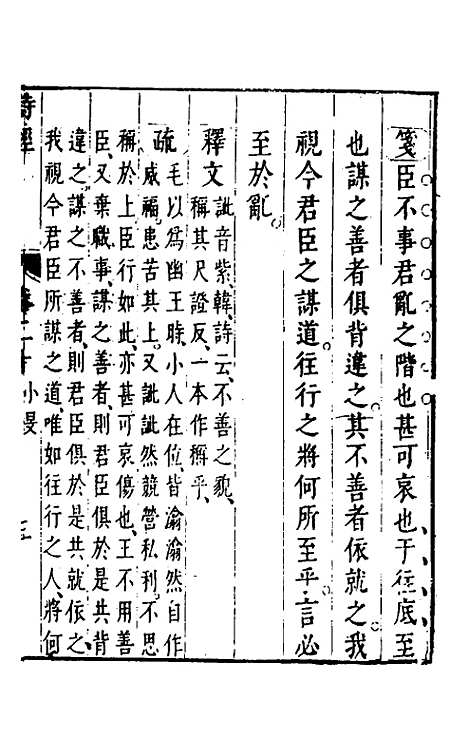 箋臣不事君亂之階也甚可哀也于往底至
也謀之善者俱背違之其不善者依就之我
視今君臣之謀道往行之將何所至乎言必
至於亂
釋文訿音紫韓詩云不善之貌
稱其尺證反一本作稱乎
疏毛以爲幽王時小人在位皆潝潝然自作
威福患苦其上又訿訿然競營私利不思
稱於上臣行如此亦甚可哀傷也王不用善
臣又棄職事謀之善者則君臣俱於是共背
違之謀之不善者則君臣俱於是共就依之
我視今君臣所謀之道唯如往行之人將何
詩經
小旻
三